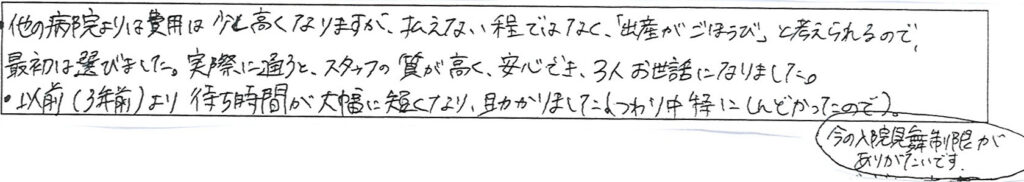 ・他の病院よりは費用は少し高くなりますが、払えない程ではなく、「出産がごほうび」と考えられるので、
最初は選びました。実際に通うと、スタッフの質が高く、安心でき、3人お世話になりました。
・以前(3年前)より待ち時間が大幅に短くなり、助かりました(つわり中特にしんどかったので)。
今の入院見舞制限が
ありがたいです。